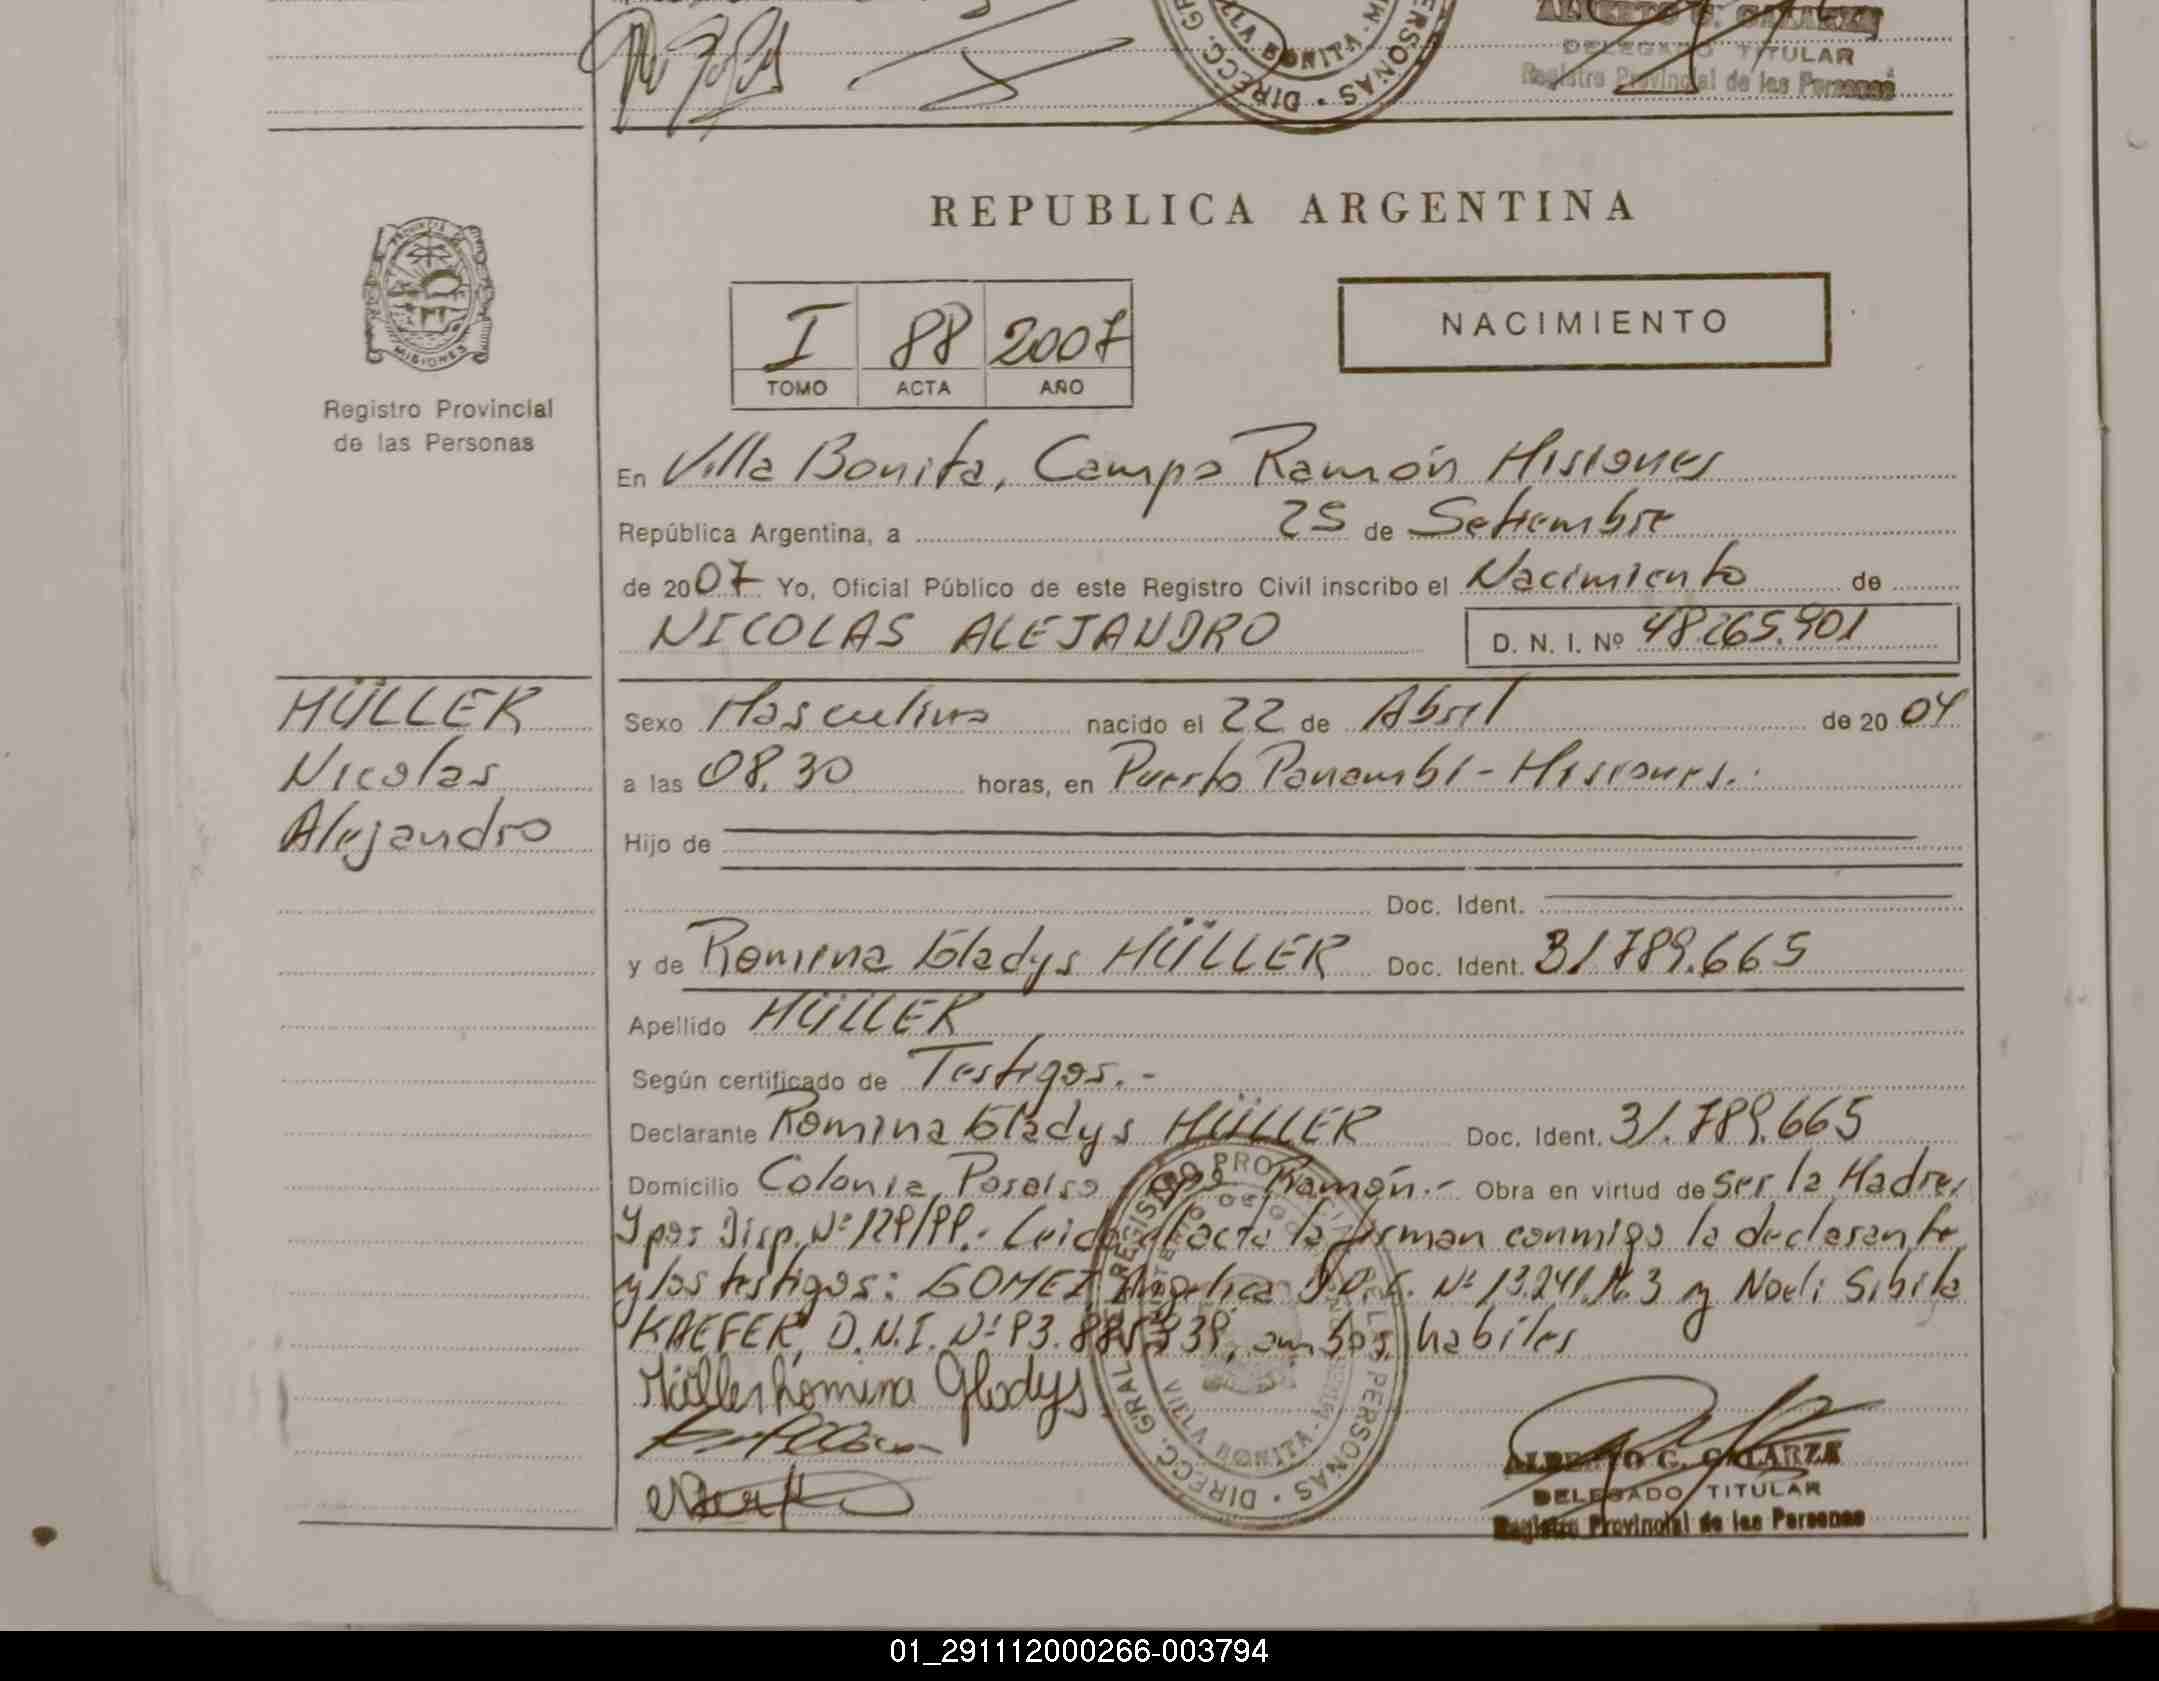 DIRECC. GR
VILLA BONITA
PERSONAS
ALBERTO G. GALARZA
DELEGADO TITULAR
Registro Provincial de las Personas
PROVINCIA DE
MISIONES
Registro Provincial
de las Personas
REPUBLICA ARGENTINA
I 88 2007
TOMO ACTA AÑO
NACIMIENTO
En Villa Bonita, Campo Ramón Misiones
República Argentina, a 25 de Setiembre
de 2007 Yo, Oficial Público de este Registro Civil inscribo el Nacimiento de
NICOLAS ALEJANDRO D. N. I. Nº 48.265.901
MÜLLER
Nicolas
Alejandro
Sexo Masculino nacido el 22 de Abril de 2004
a las 08,30 horas, en Puerto Panambí - Misiones.
Hijo de
Doc. Ident.
y de Romina Gladys MÜLLER Doc. Ident. 31.789.665
Apellido MÜLLER
Según certificado de Testigos.-
Declarante Romina Gladys MÜLLER Doc. Ident. 31.789.665
Domicilio Colonia Paraiso Cpo Ramón.- Obra en virtud de Ser la Madre,
y por Disp. Nº 129/99.- Leida el acta la firman conmigo la declarante
y los testigos: GOMEZ Angelica Nº y Noeli Sibila
KAEFER, D.N.I. Nº ambos habiles
Müller Romina Gladys
REGISTRO PROVINCIAL
DE LAS PERSONAS
DIRECC. GRAL
VILLA BONITA
ALBERTO G. GALARZA
DELEGADO TITULAR
Registro Provincial de las Personas
01_291112000266-003794